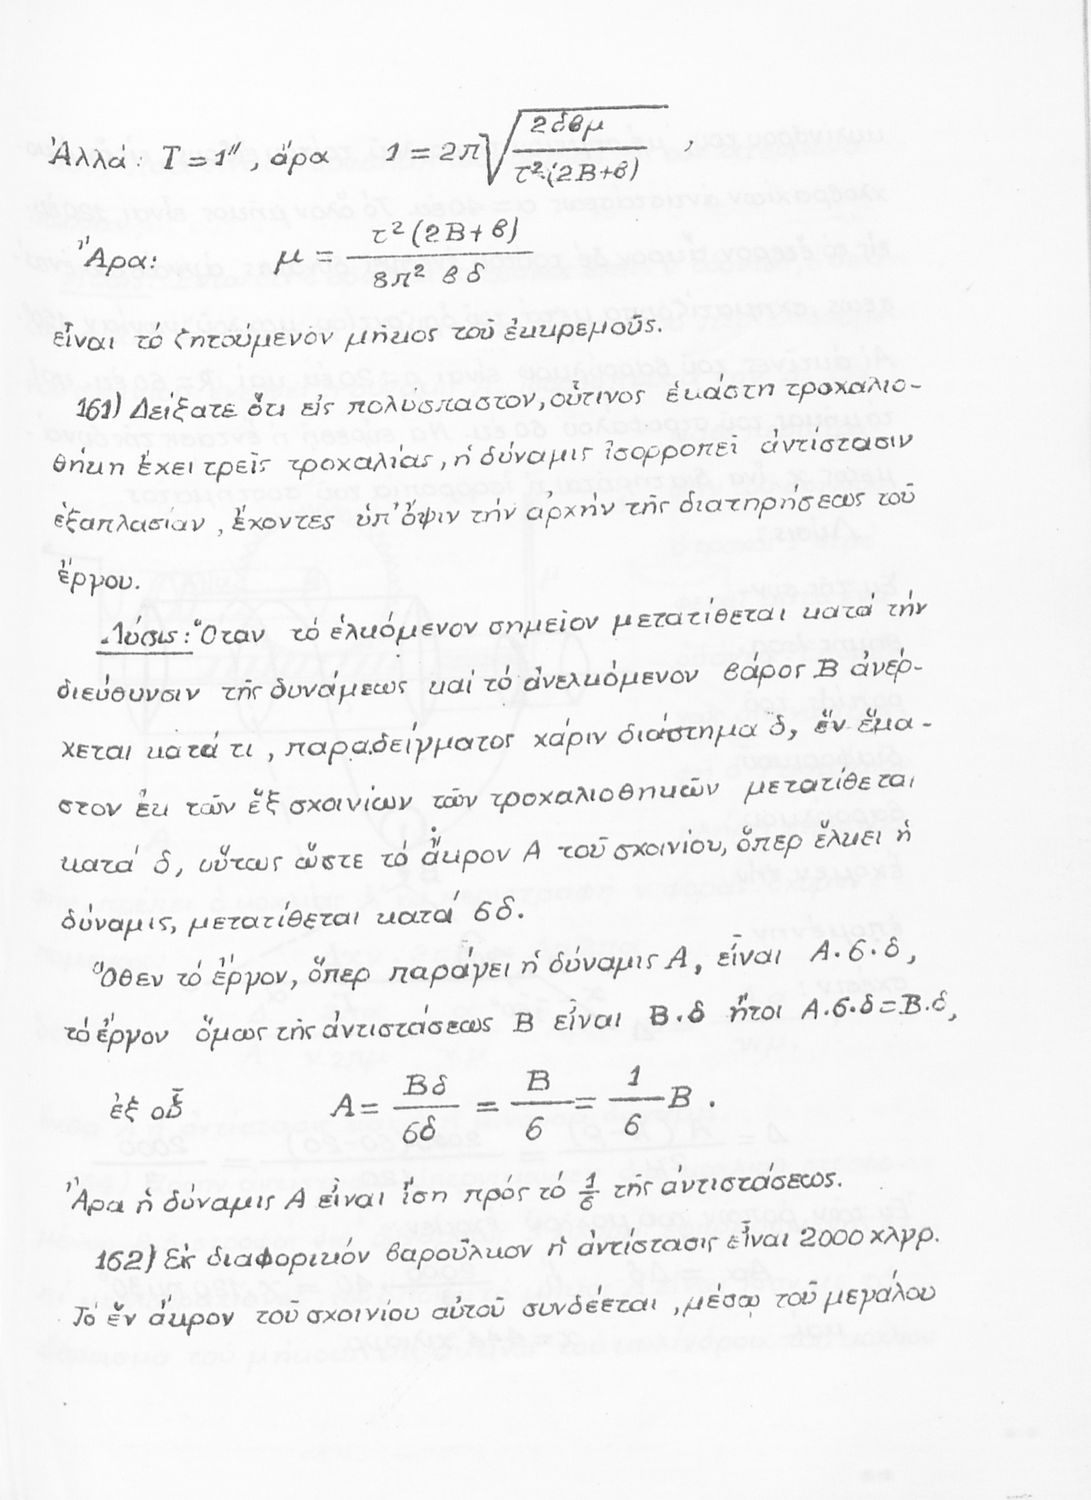 Ἀλλά: Τ=1″, ἄρα 1 = 2π√(2δβμ / τ²·(2Β+β)) ,
Ἄρα: μ = τ²(2Β+β) / 8π² β δ
εἶναι τό ζητούμενον μῆκος τοῦ ἐκκρεμοῦς.
161) Δείξατε ὅτι εἰς πολύσπαστον, οὗτινος ἑκάστη τροχαλιο-
θήκη ἔχει τρεῖς τροχαλίας, ἡ δύναμις ἰσορροπεῖ ἀντίστασιν
ἑξαπλασίαν, ἔχοντες ὑπ' ὄψιν τήν ἀρχήν τῆς διατηρήσεως τοῦ
ἔργου.
Λύσις: Ὅταν τό ἑλκόμενον σημεῖον μετατίθεται κατά τήν
διεύθυνσιν τῆς δυνάμεως καί τό ἀνελκόμενον βάρος Β ἀνέρ-
χεται κατά τι, παραδείγματος χάριν διάστημα δ, ἕν ἕκα-
στον ἐκ τῶν ἕξ σχοινίων τῶν τροχαλιοθηκῶν μετατίθεται
κατά δ, οὕτως ὥστε τό ἄκρον Α τοῦ σχοινίου, ὅπερ ἕλκει ἡ
δύναμις, μετατίθεται κατά 6δ.
Ὅθεν τό ἔργον, ὅπερ παράγει ἡ δύναμις Α, εἶναι Α.6.δ,
τό ἔργον ὅμως τῆς ἀντιστάσεως Β εἶναι Β.δ ἤτοι Α.6.δ=Β.δ,
ἐξ οὗ Α= Βδ/6δ = Β/6 = 1/6 Β .
Ἄρα ἡ δύναμις Α εἶναι ἴση πρός τό 1/6 τῆς ἀντιστάσεως.
162) Ἐκ διαφορικόν βαροῦλκον ἡ ἀντίστασις εἶναι 2000 χλγρ.
Τό ἕν ἄκρον τοῦ σχοινίου αὐτοῦ συνδέεται, μέσῳ τοῦ μεγάλου